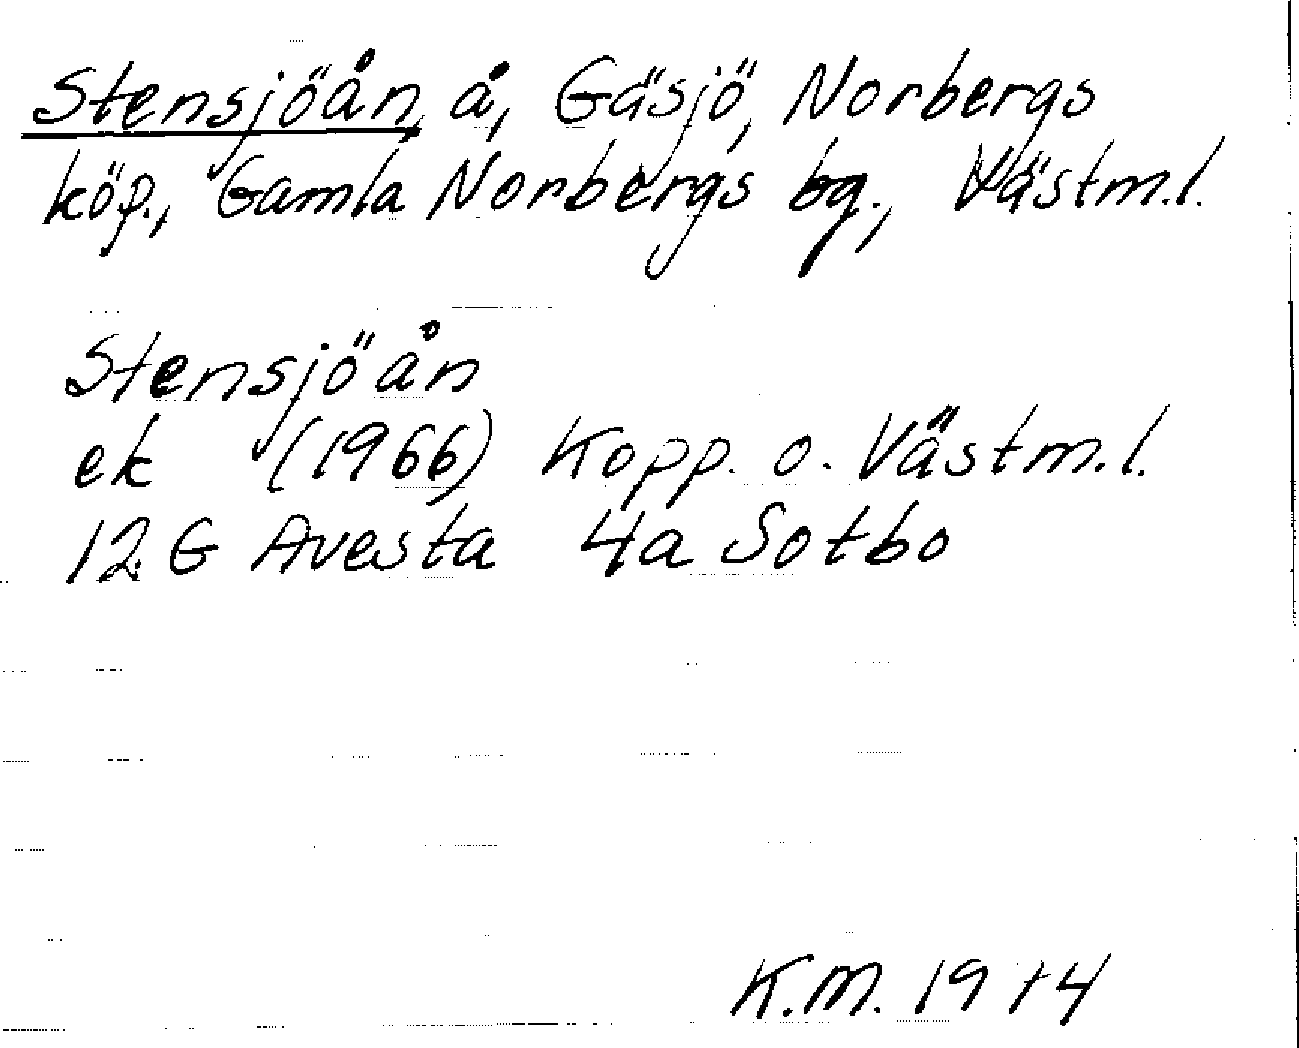 Stensjöån, å, Gäsjö, Norbergs
köp., Gamla Norbergs bg., Västm.l.
Stensjöån
ek (1966) Kopp. o. Västm.l.
12 G Avesta 4a Sotbo
K.M. 1974